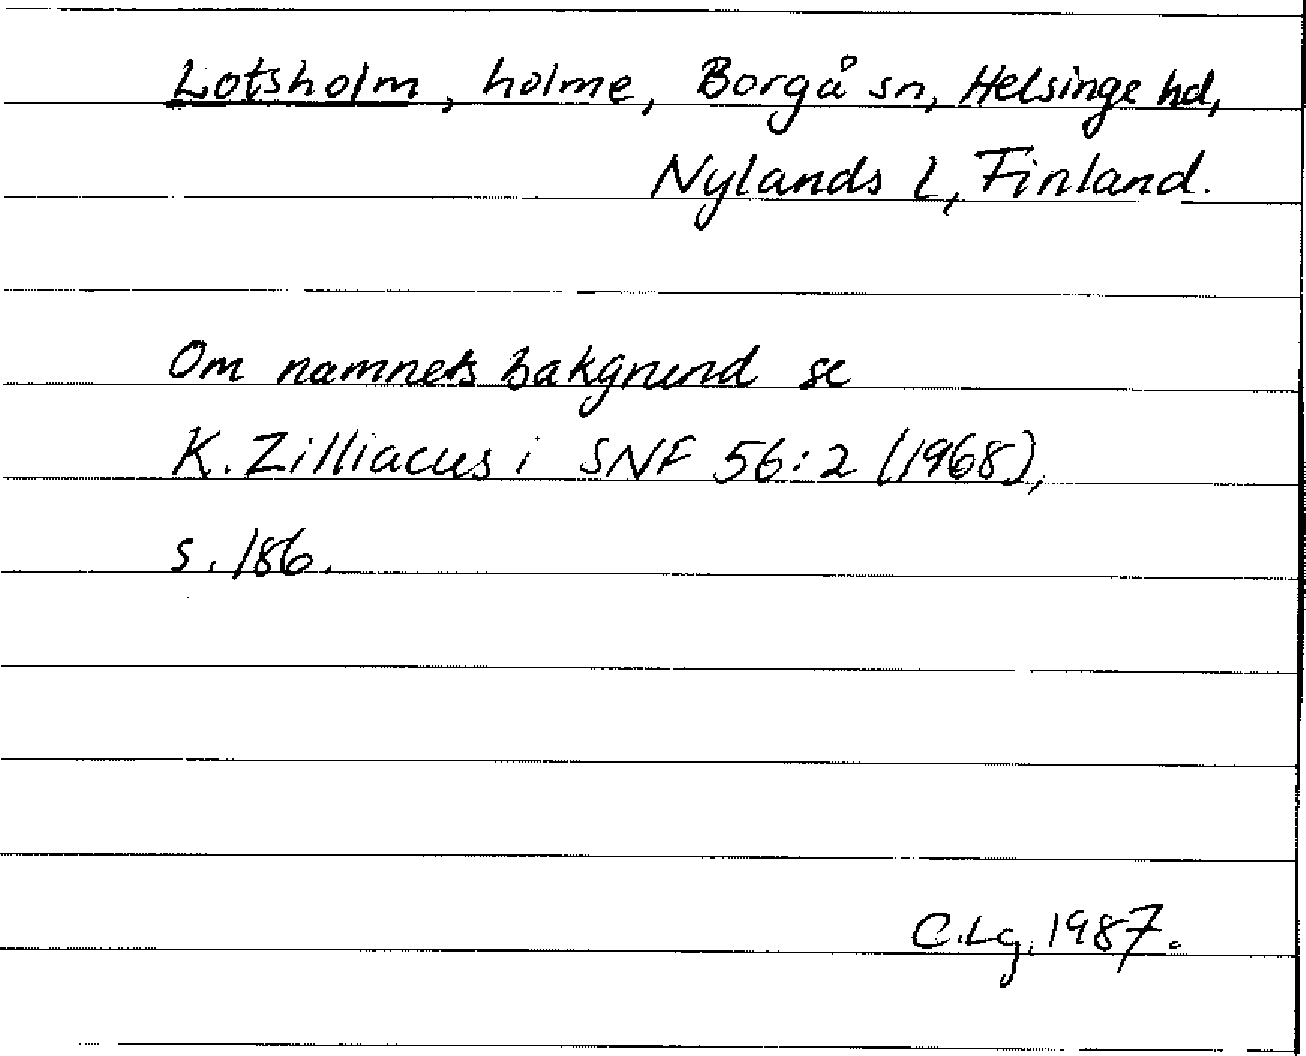 Lotsholm, holme, Borgå sn, Helsinge hd,
Nylands l, Finland.
Om namnets bakgrund se
K. Zilliacus i SNF 56:2 (1968),
s. 186.
C.Lg. 1987.